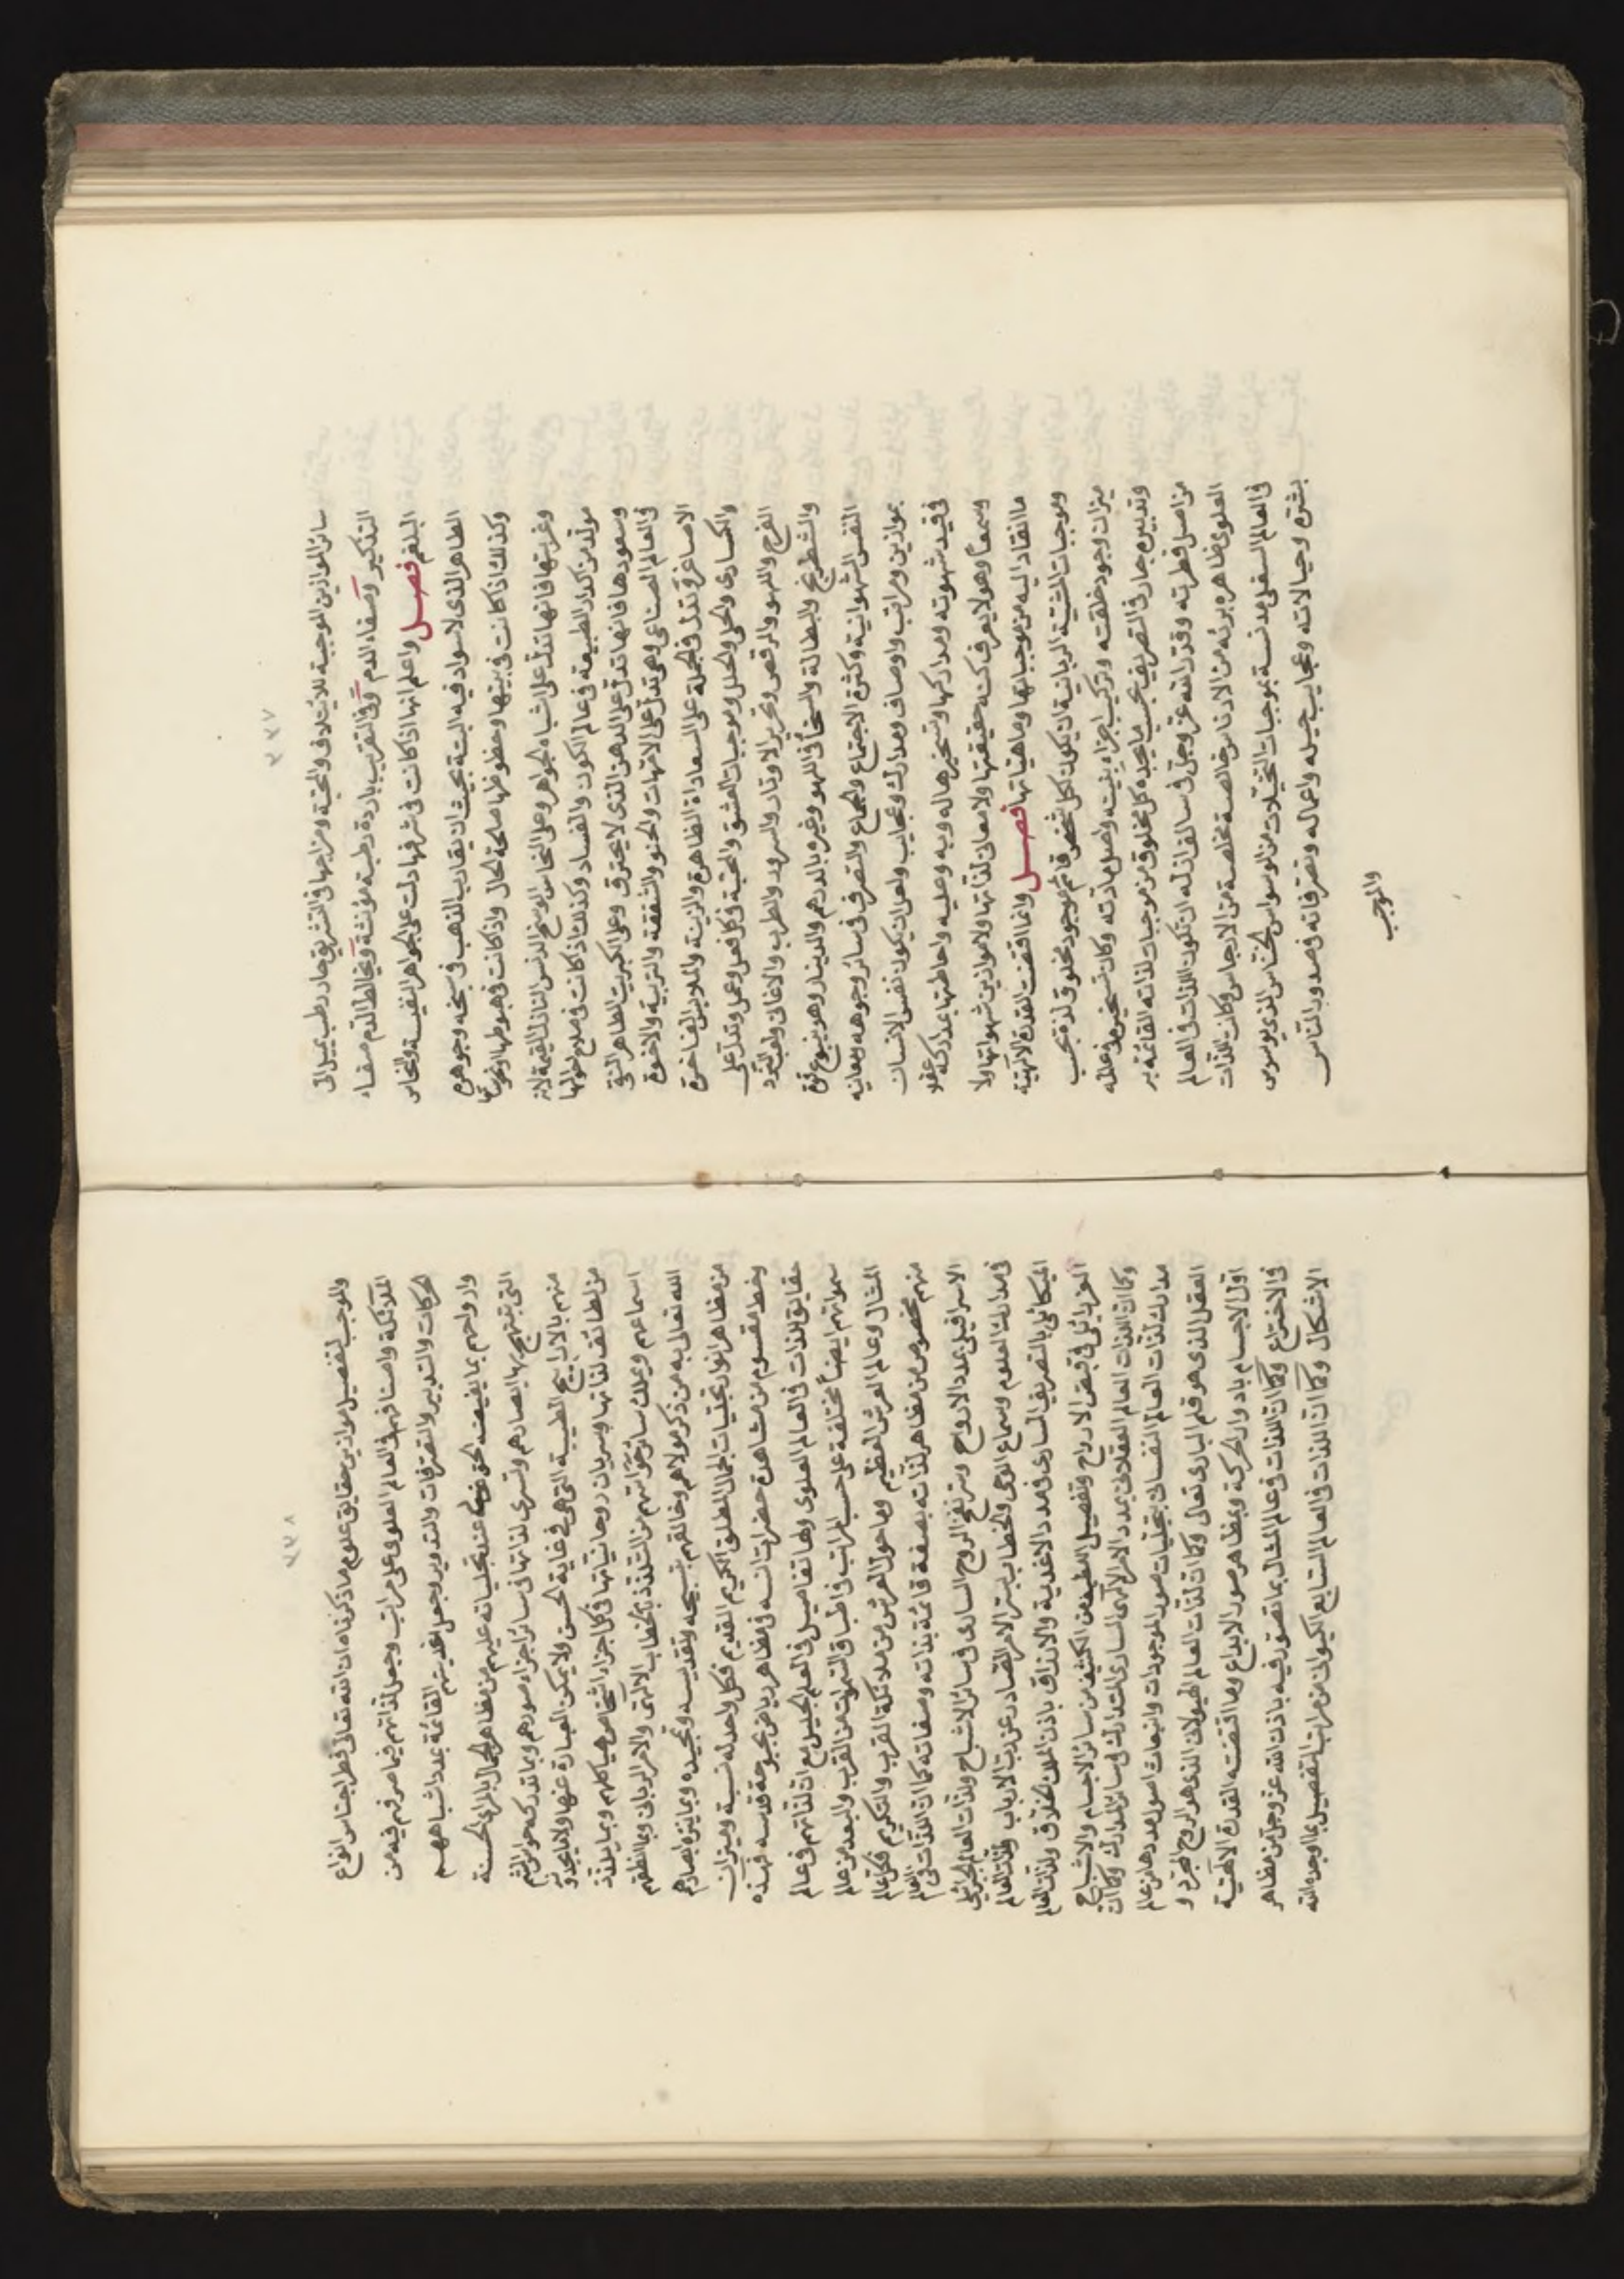 ٢٢٧
سائر الموازين الموجبة للايتلاف والمحبة ومزاجها فى التشريق حار رطب يميل الى
التذكير وصفاء الدم وفى التغريب باردة رطبة مؤنثة ويخالط الدم صفاء
البلغم فصل واعلم انها اذا كانت فى شرفها دلت على الجواهر النفيسة والنحاس
الطاهر الذى لا سواد فيه البتة بحيث ان يقارب الذهب فى سبخه وجوهره
وكذلك اذا كانت فى بيتها وحظوظها صالحة الحال واذا كانت فى هبوطها
وغربتها فانها تدل على اشباه الجواهر وعلى النحاس الوسخ الدنس النازل القيمة لانه
مولد من كدار الطبيعة فى عالم الكون والفساد وكذلك اذا كانت فى صلاح حالها
وسعودها فانها تدل على الدهن الذى لا يحترق وعلى الكبريت الطاهر النقى
فى العالم الصناعى وهى تدل على الامهات والحنو والشفقة والتربية والاخوة
الاصاغر وتدل فى الجملة على السعادة الظاهرة والزينة والملابس الفاخرة
والكساوى والحلى والحلل وموجبات العشق والمحبة فى كل فعل وعمل وتدل على
الفرح واللهو والرقص وتحرير الاوتار والسرور والطرب والاغانى ولعب النرد
والشطرنج والبطالة والسخاء فى اللهو وغيره بالدرهم والدينار وهو ينبوع قوة
النفس الشهوانية وكثرة الاجتماع والجماع والتصرف فى سائر وجوهه ومعانيه
بموازين ومراتب واوصاف ومدارك وعجايب ولعل ان يكون نفس الانسان
فى قيد شهوته ومداركها وتسخيرها له وبه وعليه واحاطتها بمداركه عقلا
وسمعا وهو لا يعرف كنه حقيقتها ولا معانى لذاتها ولا موازين شهواتها ولا
ما انقاد اليه من موجباتها وماهياتها فصل وانما اقتضت القدرة الالهية
وموجبات المشيئة الربانية ان يكون لكل شخص قائم موجود مخلوق لذة بحسب
ميزان وجود خلقته وتركيب اجزاء بنيته واصل مادته وكان تسخيره فى عالمه
وتدبيره جار فى التصريف بحسب ما يجده كل مخلوق من موجبات لذاته القائمة به
من اصل فطرته وقدر الله عز وجل فى سالف ازله ان تكون اللذات فى العالم
العلوى طاهرة بريه من الادناس خالصة مخلصة من الارجاس وكانت اللذات
فى العالم السفلى مدنسة بموجبات التخيلات من الوسواس الخناس الذى يوسوس
بشره وحيالاته وعجايب حيله واعماله وتصرفاته فى صدور الناس
والموجب
٢٢٨
والموجب لتفصيل موازين حقايق علوم ما ذكرناه ان الله تعالى فطر اجناس انواع
الملائكة واصنافهم فى العالم العلوى على مراتب وجعل لذاتهم فيما صرفهم فيه من
الحركات والتدبير والتصرفات والتدوير وجعل اغذيتهم القائمة بمدد اشباههم
وارواحهم بما يفيضه الحق عند تجلياته عليهم من مظاهر الجمال بالمراى الحسنة
التى تبتهج بها ابصارهم وتسرى لذاتها فى سائر اجزاء صورهم وبما تدركه حواس الشم
منهم بالاراييح الطيبة التى هى فى غاية الحسن ولا يمكن العبارة عنها ولا
من لطائف لذاتها وسريان روحانيتها فى كل اجزاء اشخاص هياكلهم وبما يلذذ
اسماعهم ويملك سائر حواسهم من التلذذ بالخطاب الالهى والامر الربانى وبما انطقهم
الله تعالى به من ذكر مولاهم وخالقهم بتسبيحه وتقديسه وتمجيده وبما ينزه ابصارهم
من مظاهر انوار تجليات الجمال المطلق الكريم القديم فكل واحد له نسبة وميزان
وحظ مقسوم من مشاهدة حضرات انسه فى مظاهر رياض بحبوحة قدسه فهذه
حقايق اللذات فى العالم العلوى وهنا تفاصيل فى العلم الجليل مع ان لذاتهم فى عالم
سمواتهم ايضا مختلفة على حسب المراتب فى اطباق السموات من القرب والبعد من عالم
المثال وعالم العرش العظيم وما حول العرش من ملائكة القرب والتكريم فكل عالم
منهم مخصوص من مظاهر لذاته بصفة قائمة بذاته وصفاته كما ان اللذات فى العالم
الاسرافيلى بمدد الارواح ونفخ الروح السارى فى سائر الاشباح ولذات العالم الجبرائيلى
فى مدارك العلوم وسماع الوحى والخطاب بسر الامر الصادر عن رب الارباب ولذات العالم
الميكائيلى بالتصريف السارى فى مدد الاغذية والارزاق باذن الملك الخلاق ولذات العالم
العزرائيلى فى قبض الارواح وتفصيل اللطيف من الكثيف من سائر الاجسام والاشباح
وكما ان اللذات العالم العقلانى بمدد الامر الالهى السارى المتدارك فى سائر المدارك وكما ان
مدارك لذات العالم النفسانى بتجليات صور الموجودات وانبعاث اصول مددها من عالم
العقل الذى هو قلم البارى تعالى وكما ان لذات العالم الهيولانى الذى هو الروح المجرد و
اول الاجسام باد والحركة وبمظاهر صور الابداع وما اقتضته القدرة الالهية
فى الاختراع وكما ان اللذات فى عالم المثال بما تصور فيه باذن الله عز وجل من مظاهر
الاشكال وكما ان اللذات فى العالم السابع الكيوانى من مراتب التفصيل بما اوجده الله